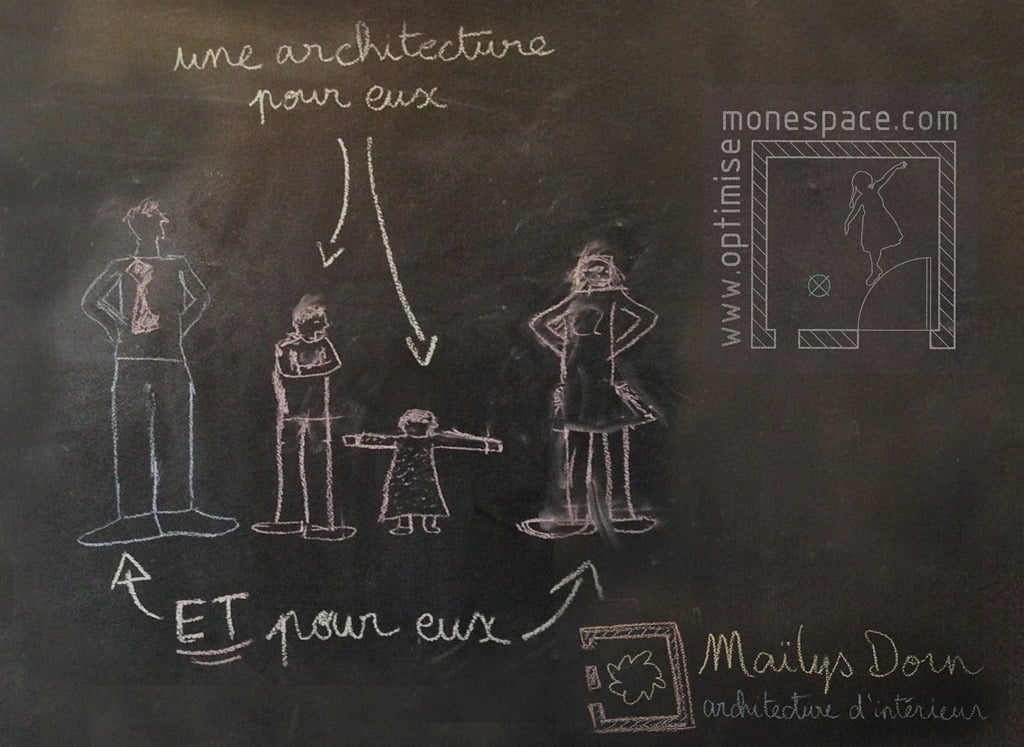 une architecture
pour eux
monespace.com
www.optimise
ET pour eux
Maïlys Dorn
architecture d'intérieur